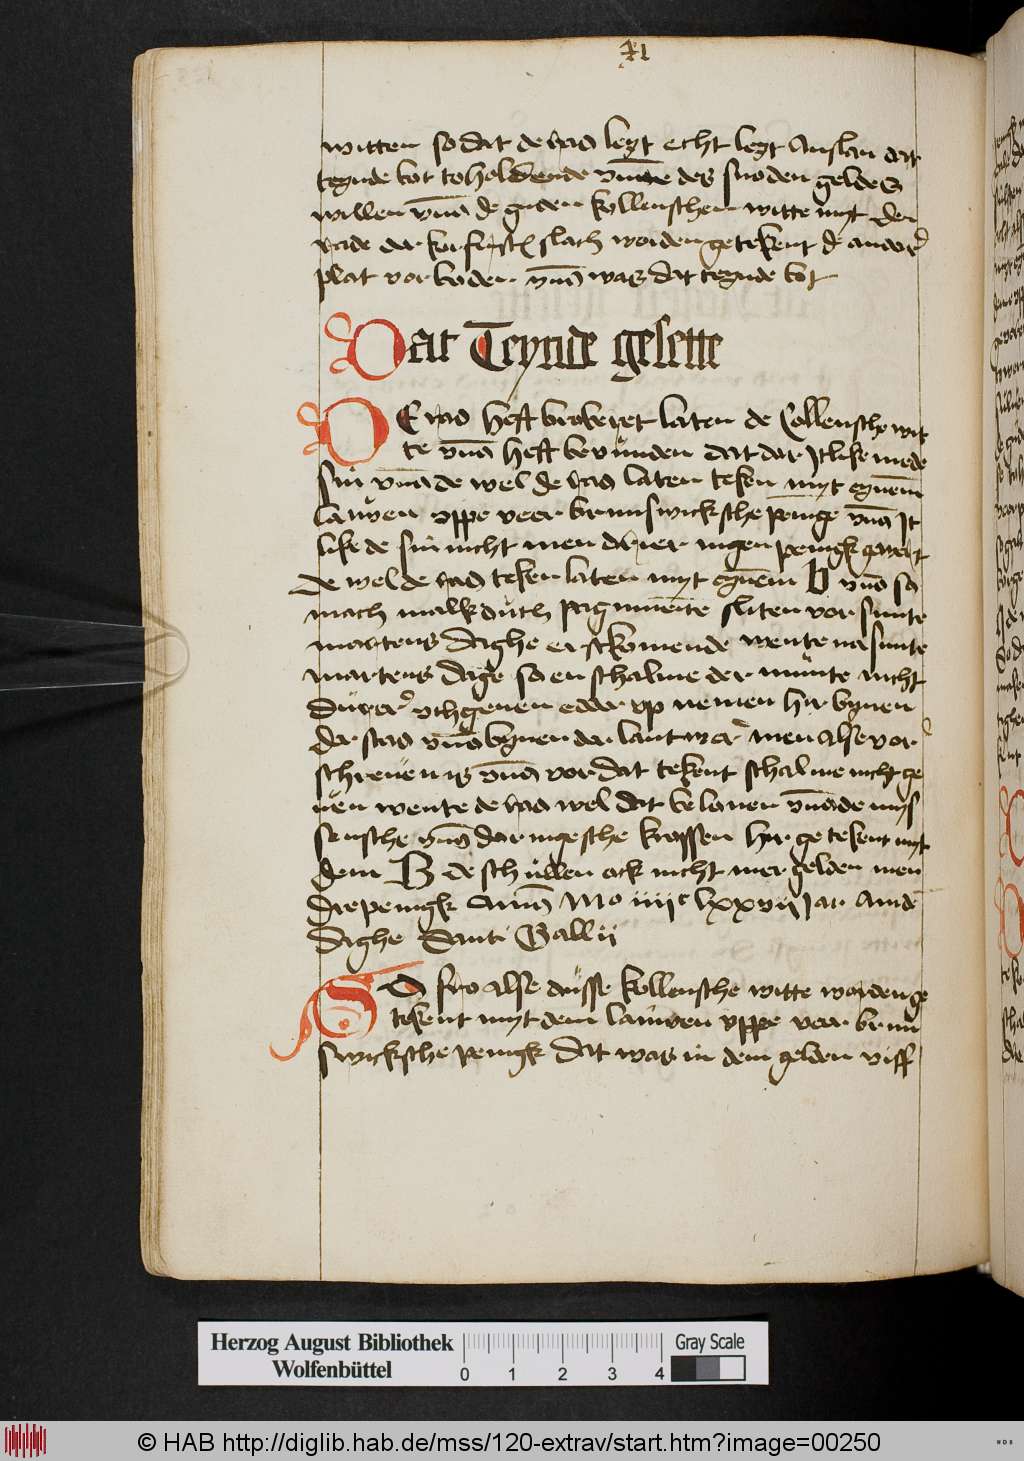 41
witten so dat de rad leyt echt leyt Anslan dat
teynde bot toholdende vm̄e des snoden geldes
willen vn̄ de guden kollenschen witte myt der
plat vorboden vn̄ was dat teynde bot
Dat Teynde gesette
DE rad heft broberet laten de Collensche wit
te vn̄ heft bevunden dat dar Itlike mede
sin vn̄ de wel de rad laten teken myt eynem
lauwen vppe veer brunswicksche penīge vn̄ It
like de sin nicht men drier nigen penīgk wert
de wel de rad teken laten myt eynem B vn̄ so
mach malk duth pagimente sliten vor sunte
martens daghe erstkomende wente na sunte
martens dage so en schal me der munte nicht
durer vthgeuen edder vp nemen hir bynnen
der stad vn̄ bynnen der lantwer men alse vor
schreuen is vn̄ vor dat tekent schal me nicht ge
uen wente de rad wel dat belouen vn̄ de mys
sensche vn̄ doringesche krossen hir getekent myt
dem B de schullen ock nicht mer gelden men
dre penigk Anno Mo iiiic lxxvij Jar am de
daghe Santi Gallij
SO fro alse dusse kollensche witte worden ge
tekent myt dem lauwen vppe veer brun
swicksche penigk dat was in dem gelden viff
Herzog August Bibliothek
Wolfenbüttel
0 1 2 3 4
Gray Scale
© HAB http://diglib.hab.de/mss/120-extrav/start.htm?image=00250